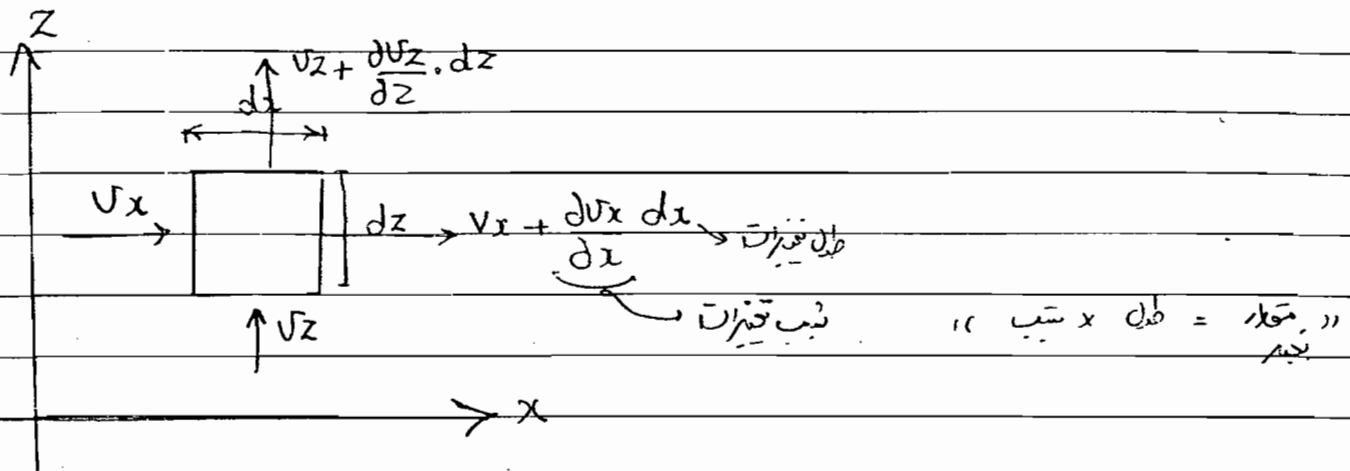 z
Vz + ∂Vz/∂z . dz
dx
Vx
dz
Vx + ∂Vx/∂x dx
طول تغییرات
شیب تغییرات
« مقدار تغییر = طول × شیب »
Vz
x